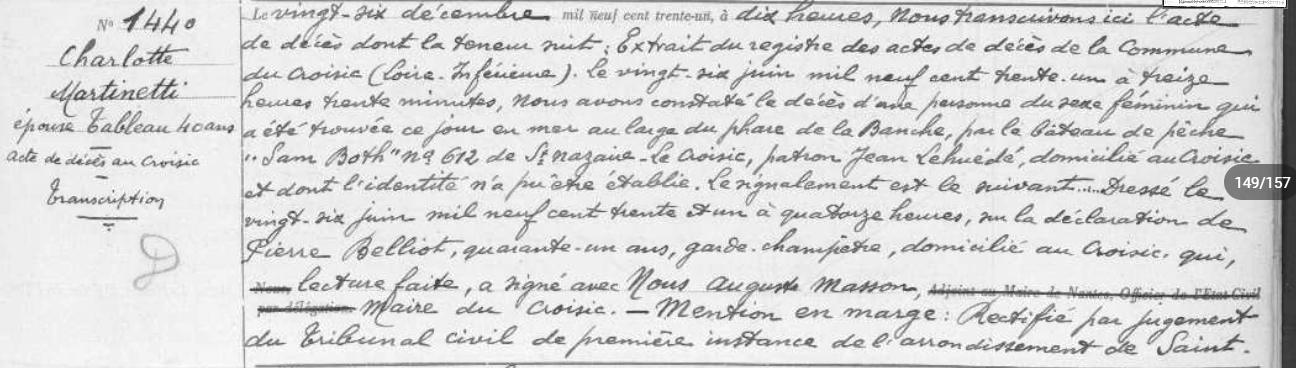 N° 1440
Charlotte
Martinetti
épouse Tableau 40 ans
acte de décès au Croisic
Transcription
D
Le vingt-six décembre mil neuf cent trente-un, à dix heures, Nous transcrivons ici l'acte
de décès dont la teneur suit : Extrait du registre des actes de décès de la Commune
du Croisic (Loire-Inférieure). Le vingt-six juin mil neuf cent trente-un à treize
heures trente minutes, Nous avons constaté le décès d'une personne du sexe féminin qui
a été trouvée ce jour en mer au large du phare de la Banche, par le bâteau de pêche
"Sam Both" n° 612 de St Nazaire-Le Croisic, patron Jean Lehuédé, domicilié au Croisic
et dont l'identité n'a pu être établie. Le signalement est le suivant.... Dressé le
149/157
vingt-six juin mil neuf cent trente et un à quatorze heures, sur la déclaration de
Pierre Belliot, quarante-un ans, garde-champêtre, domicilié au Croisic, qui,
Nous, lecture faite, a signé avec Nous Auguste Masson, Adjoint au Maire de Nantes, Officier de l'Etat-Civil
par délégation. Maire du Croisic. — Mention en marge : Rectifié par jugement
du Tribunal civil de première instance de l'arrondissement de Saint-